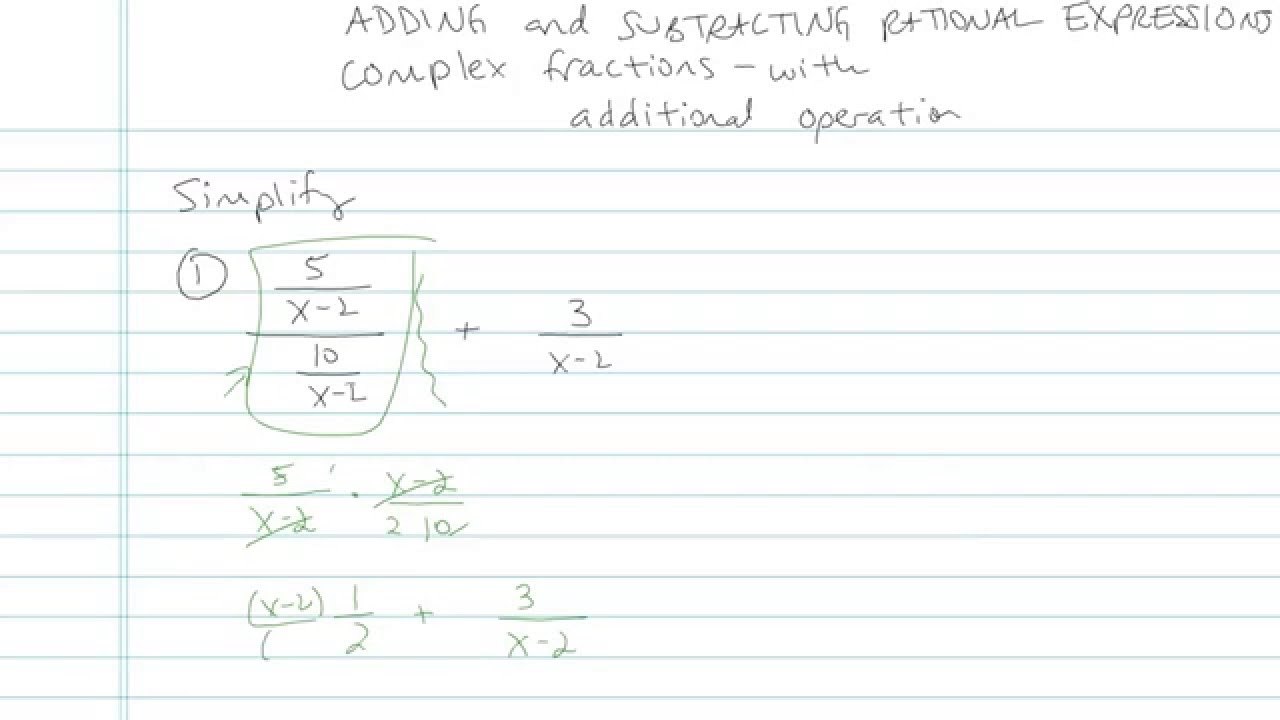 ADDING and SUBTRACTING RATIONAL EXPRESSIONS
complex fractions - with
additional operation
Simplify
① 5
x-2
10
x-2
+ 3
x-2
5
x-2
· x-2
2 10
(x-2)
(
1
2
+ 3
x-2